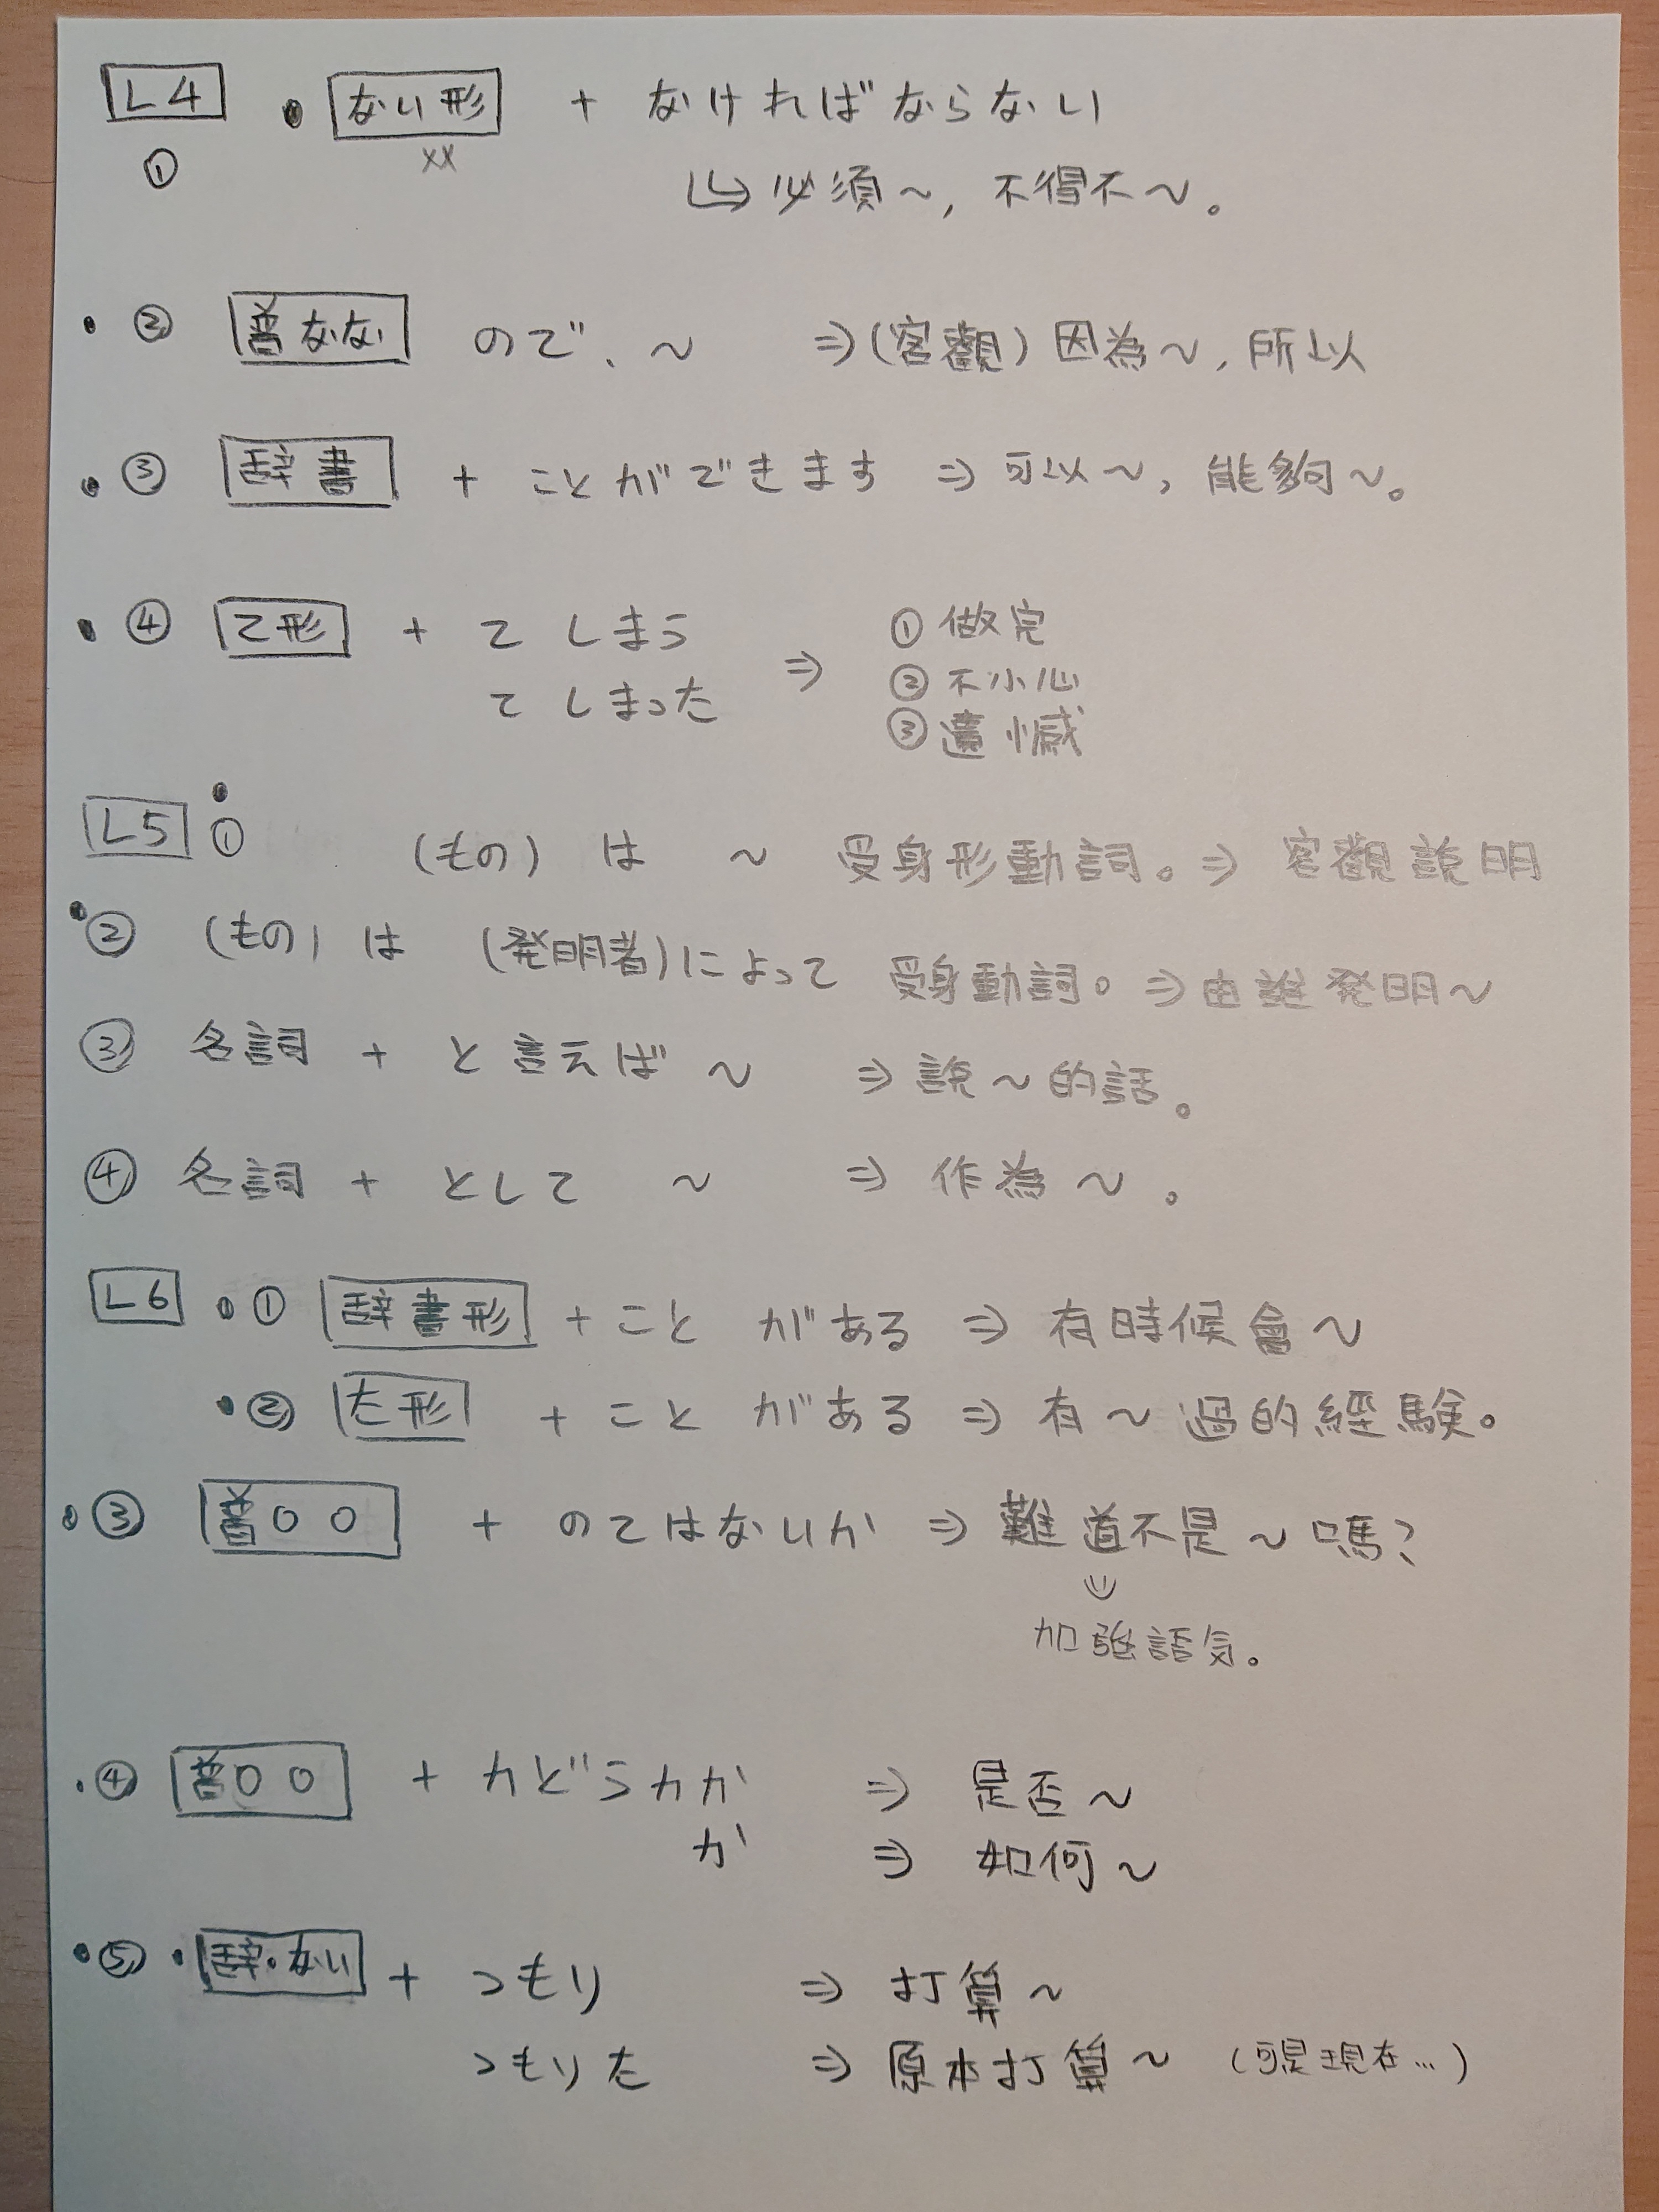 L4 ・ ない形 + なければならない
① xx ↳ 必須～, 不得不～。
・② 普なな ので、～ ⇒(客觀)因為～,所以
・③ 辞書 + ことができます ⇒ 可以～, 能夠～。
・④ て形 + てしまう ⇒ ① 做完
てしまった ② 不小心
③ 遺憾
L5 ・① (もの) は ～ 受身形動詞。⇒ 客觀說明
・② (もの) は (発明者)によって 受身動詞。⇒由誰発明～
③ 名詞 + と言えば ～ ⇒ 說～的話。
④ 名詞 + として ～ ⇒ 作為～。
L6 ・① 辞書形 + こと がある ⇒ 有時候會～
・② た形 + こと がある ⇒ 有～過的經験。
・③ 普○○ + のてはないか ⇒ 難道不是～嗎?
⇓
加強語気。
・④ 普○○ + かどうかか ⇒ 是否～
か ⇒ 如何～
・⑤・辞・ない + つもり ⇒ 打算～
つもりた ⇒ 原本打算～ (可是現在…)